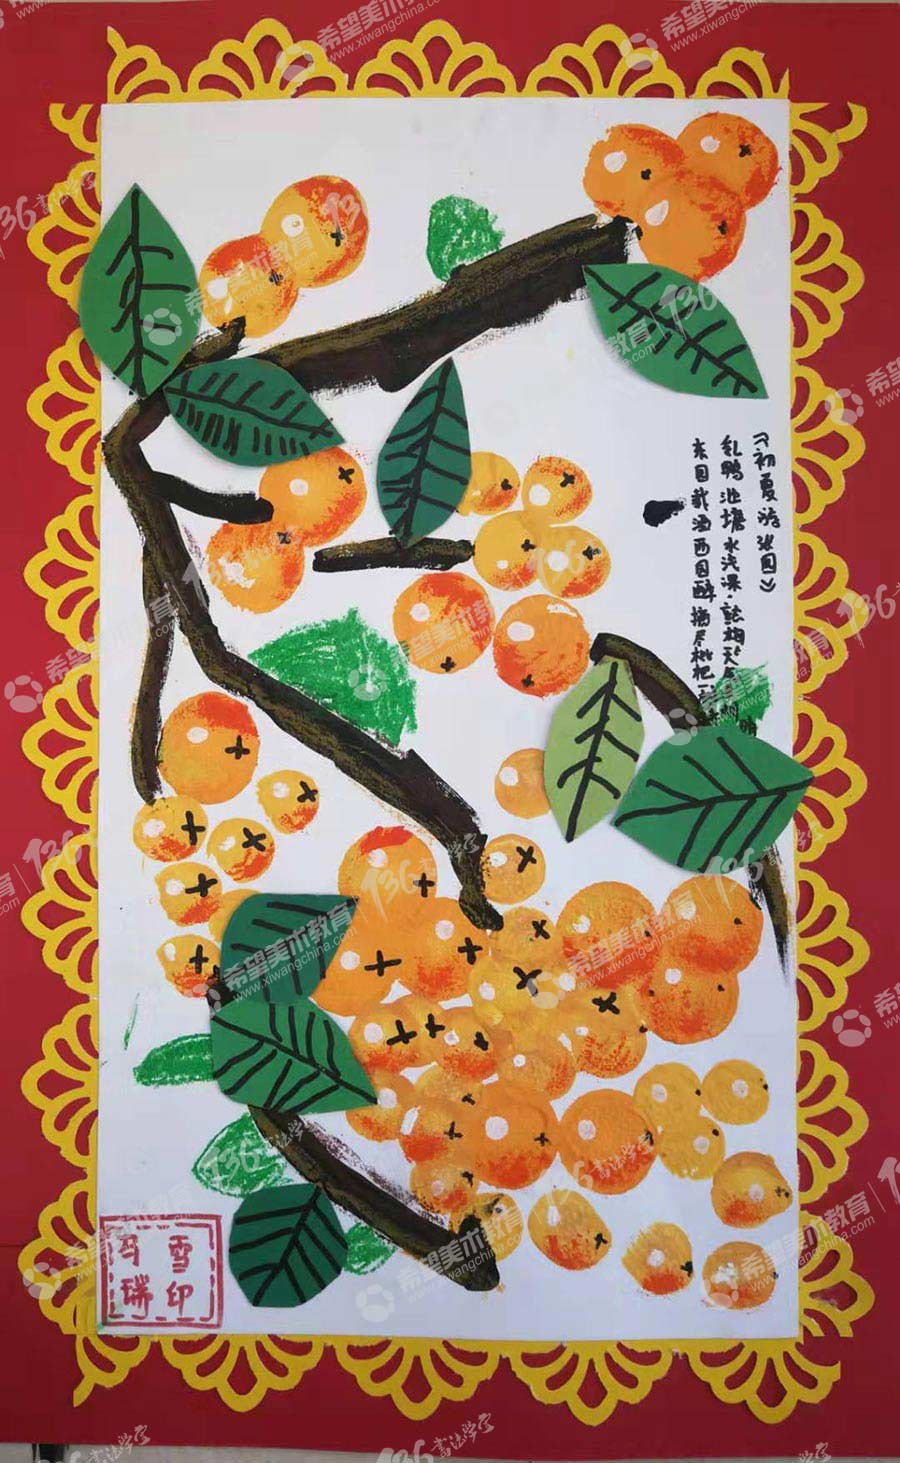 《初夏游张园》
乳鸭池塘水浅深.熟梅天
东园载酒西园醉 摘尽枇杷一
冯雪
瑞印
希望美术教育
www.xiwangchina.com
136书法学堂